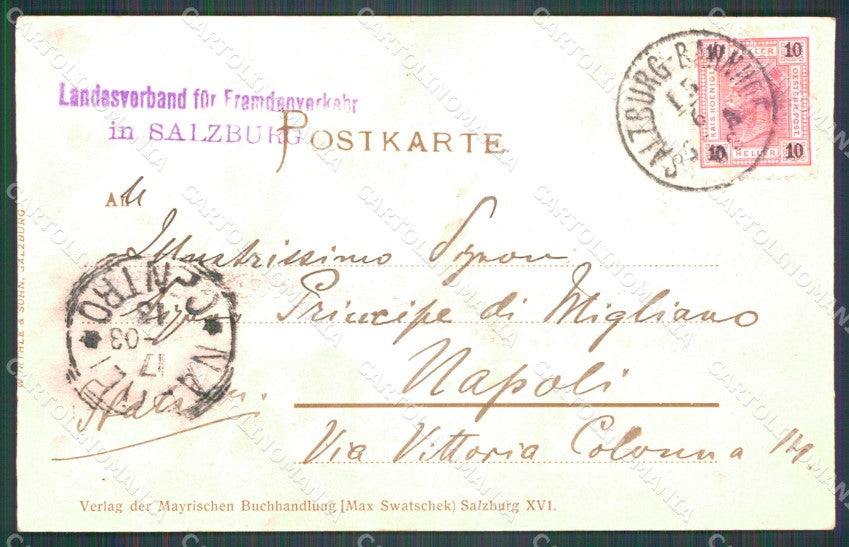 Landesverband für Fremdenverkehr
in SALZBURG
POSTKARTE
SALZBURG-BAHNHOF
10 HELLER 10
KAIS. KOENIGL. OESTERR. POST
10 HELLER 10
An
Illustrissimo Signor
Principe di Migliano
Napoli
Via Vittoria Colonna 14.
NAPOLI CENTRO
17
-03
WÜRTHLE & SOHN, SALZBURG
Verlag der Mayrischen Buchhandlung [Max Swatschek) Salzburg XVI.
CARTOLINOMANIA